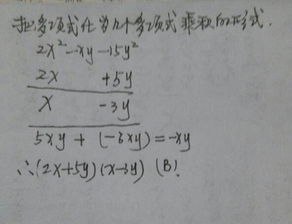 把多项式化为几个多项式乘积的形式.
2x²-xy-15y²
2x +5y
x -3y
5xy + (-6xy) = -xy
∴(2x+5y)(x-3y) (B).